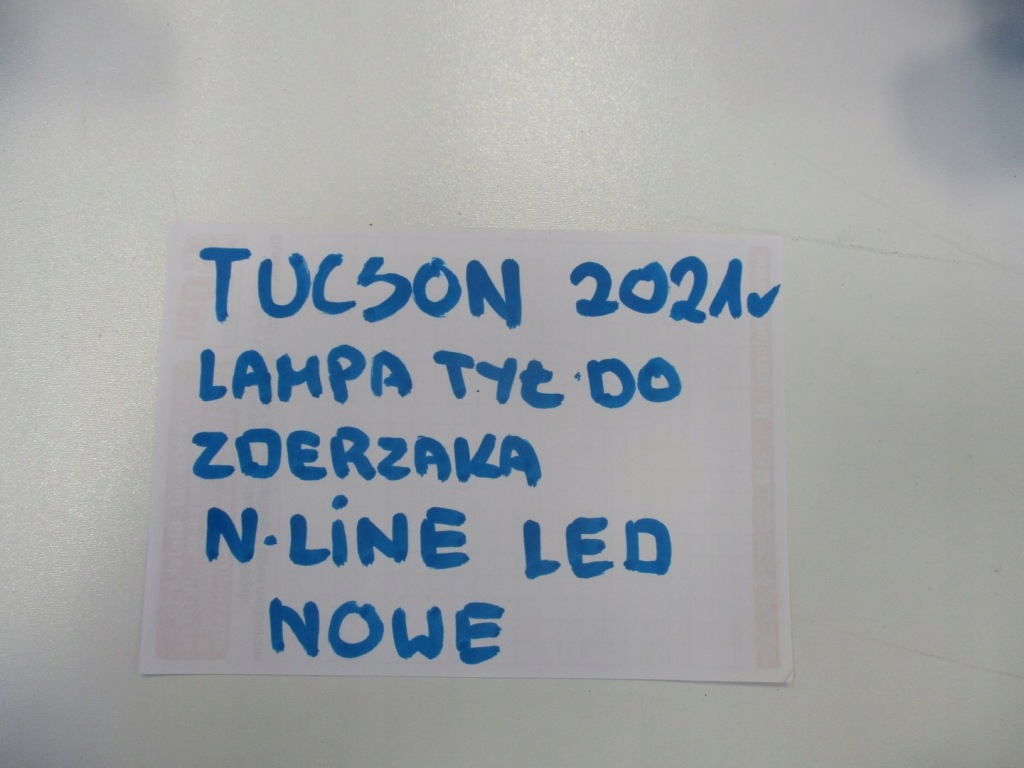 TUCSON 2021r
LAMPA TYŁ DO
ZDERZAKA
N-LINE LED
NOWE